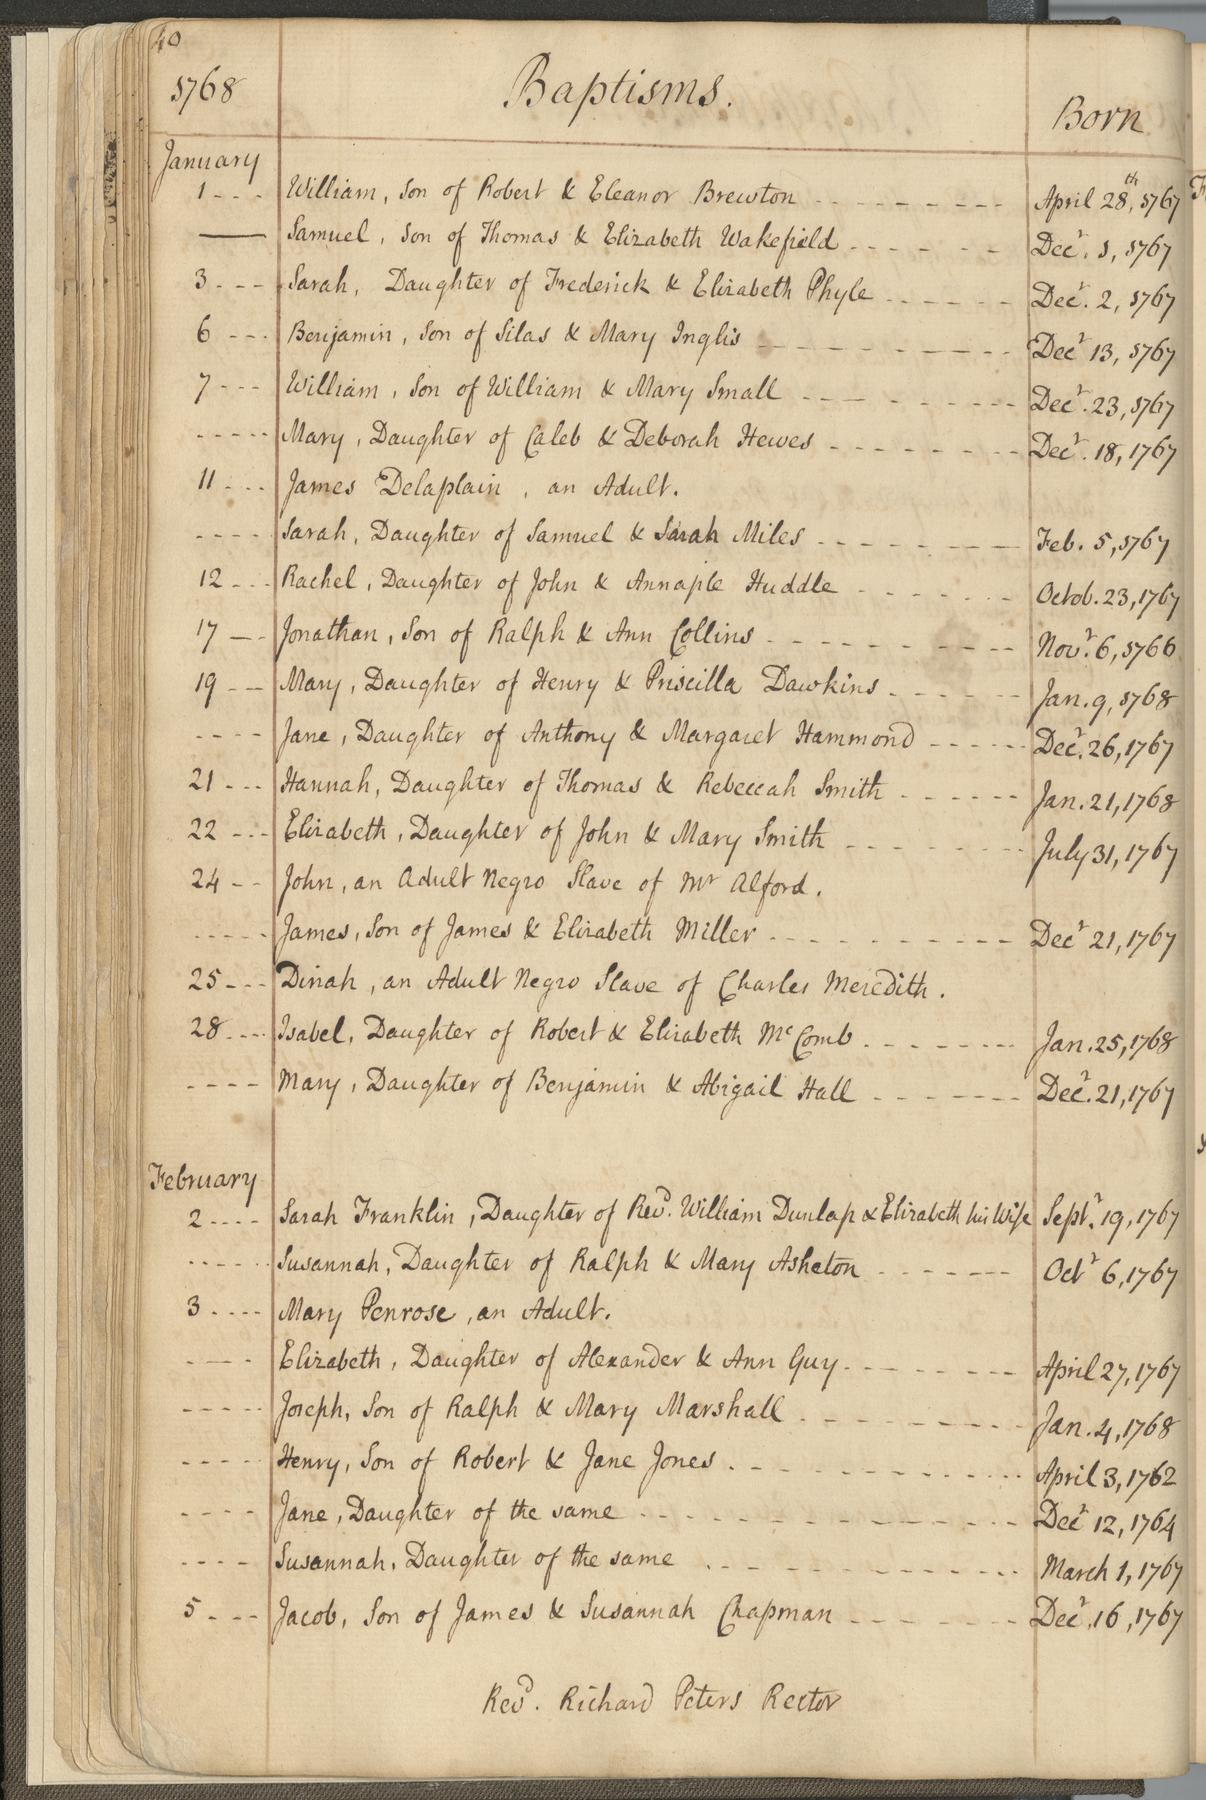 40
1768 Baptisms. Born
January
1 - - - William, Son of Robert & Eleanor Brewton - - - - - - - - - April 28th, 1767
—— Samuel, Son of Thomas & Elizabeth Wakefield - - - - - - Decr. 1, 1767
3 - - - Sarah, Daughter of Frederick & Elizabeth Phyle - - - - - - Decr. 2, 1767
6 - - - Benjamin, Son of Silas & Mary Inglis - - - - - - - - - Decr 13, 1767
7 - - - William, Son of William & Mary Small - - - - - - - - Decr. 23, 1767
- - - - - Mary, Daughter of Caleb & Deborah Hewes - - - - - - - - Decr. 18, 1767
11 - - - James Delaplain, an Adult.
- - - - Sarah, Daughter of Samuel & Sarah Miles - - - - - - - - Feb. 5, 1767
12 - - - Rachel, Daughter of John & Annaple Huddle - - - - - - - Octob. 23, 1767
17 - - Jonathan, Son of Ralph & Ann Collins - - - - - - - - - Novr. 6, 1766
19 - - Mary, Daughter of Henry & Priscilla Dawkins - - - - - - Jan. 9, 1768
- - - - Jane, Daughter of Anthony & Margaret Hammond - - - - - Decr. 26, 1767
21 - - - Hannah, Daughter of Thomas & Rebeccah Smith - - - - - - Jan. 21, 1768
22 - - - Elizabeth, Daughter of John & Mary Smith - - - - - - - - July 31, 1767
24 - - John, an Adult Negro Slave of Mr Alford.
- - - - - James, Son of James & Elizabeth Miller - - - - - - - - - - Decr 21, 1767
25 - - - Dinah, an Adult Negro Slave of Charles Meredith.
28 - - - Isabel, Daughter of Robert & Elizabeth McComb - - - - - - - - Jan. 25, 1768
- - - - Mary, Daughter of Benjamin & Abigail Hall - - - - - - - Decr. 21, 1767
February
2 - - - - Sarah Franklin, Daughter of Revd. William Dunlap & Elizabeth his Wife Septr. 19, 1767
- - - - - Susannah, Daughter of Ralph & Mary Asheton - - - - - - - Octr 6, 1767
3 - - - - Mary Penrose, an Adult.
- - - - Elizabeth, Daughter of Alexander & Ann Guy - - - - - - - - April 27, 1767
- - - - - Joseph, Son of Ralph & Mary Marshall - - - - - - - - - Jan. 4, 1768
- - - - - Henry, Son of Robert & Jane Jones - - - - - - - - - - - April 3, 1762
- - - - Jane, Daughter of the same - - - - - - - - - - - - - - Decr 12, 1764
- - - - Susannah, Daughter of the same - - - - - - - - - - - - March 1, 1767
5 - - - Jacob, Son of James & Susannah Chapman - - - - - - - Decr. 16, 1767
Revd. Richard Peters Rector